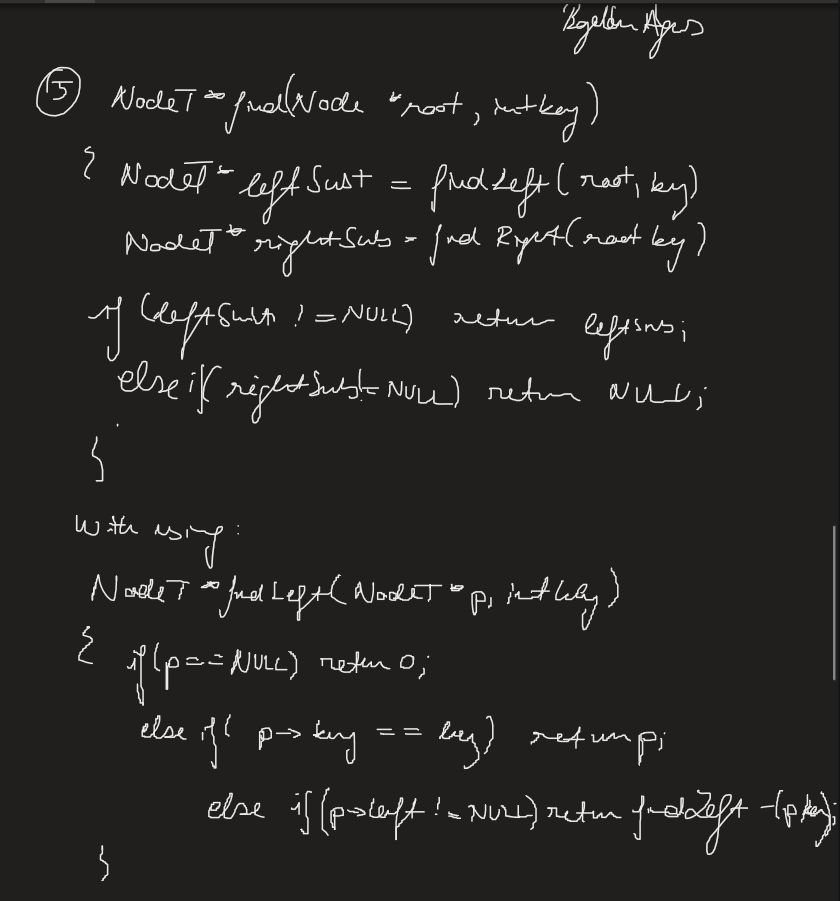 5 NodeT * find(Node *root, int key)
{ NodeT * leftSust = findLeft(root, key)
NodeT * rightSub = find Right(root key)
if (leftSust != NULL) return leftsub;
else if( rightSubt!= NULL) return NULL;
}
With using:
NodeT * findLeft( NodeT * p, int key)
{ if(p == NULL) return 0;
else if( p-> key == key) return p;
else if(p->left != NULL) return findLeft -(p key);
}